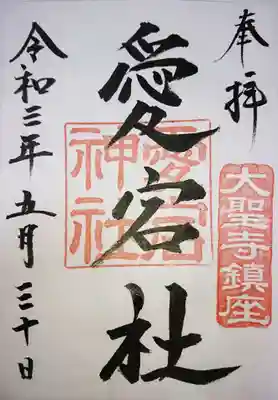 奉拝
大聖寺鎮座
愛宕社
愛宕神社
令和三年五月三十日